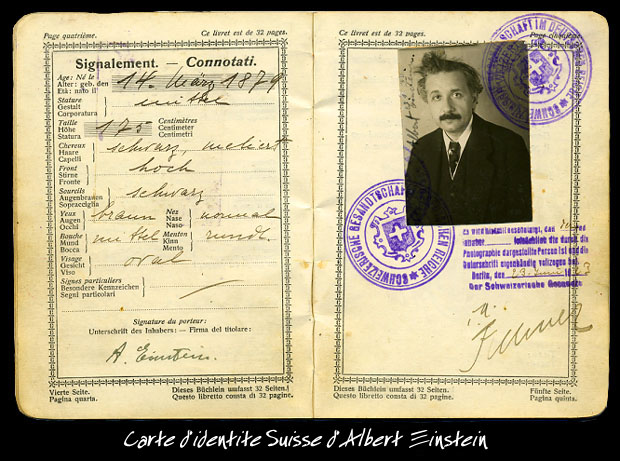 Page quatrième. Ce livret est de 32 pages.
Signalement. — Connotati.
Age: Né le
Alter: geb. den 14. März 1879
Età: nato il
Stature
Gestalt mittel
Corporatura
Taille Centimètres
Höhe 175 Centimeter
Statura Centimetri
Cheveux
Haare schwarz, meliert
Capelli
Front
Stirne hoch
Fronte
Sourcils
Augenbrauen schwarz
Sopracciglia
Yeux Nez
Augen braun Nase normal
Occhi Naso
Bouche Menton
Mund mittel Kinn rund.
Bocca Mento
Visage
Gesicht oval
Viso
Signes particuliers
Besondere Kennzeichen /
Segni particolari
Signature du porteur:
Unterschrift des Inhabers: – Firma del titolare:
A. Einstein.
Vierte Seite. Dieses Büchlein umfasst 32 Seiten.
Pagina quarta. Questo libretto consta di 32 pagine.
Ce livret est de 32 pages. Page cinquième
SCHWEIZERISCHE BESANDTSCHAFT IM DEUTSCHEN REICHE
SCHWEIZERISCHE BESANDTSCHAFT
CHEN REICHE
Photographie dargestellte Person ist und die
Unterschrift eigenhändig vollzogen hat.
Berlin, den
Der Schweizerische Gesandte
Dieses Büchlein umfasst 32 Seiten. Fünfte Seite.
Questo libretto consta di 32 pagine. Pagina quinta.
Carte d'identite Suisse d'Albert Einstein